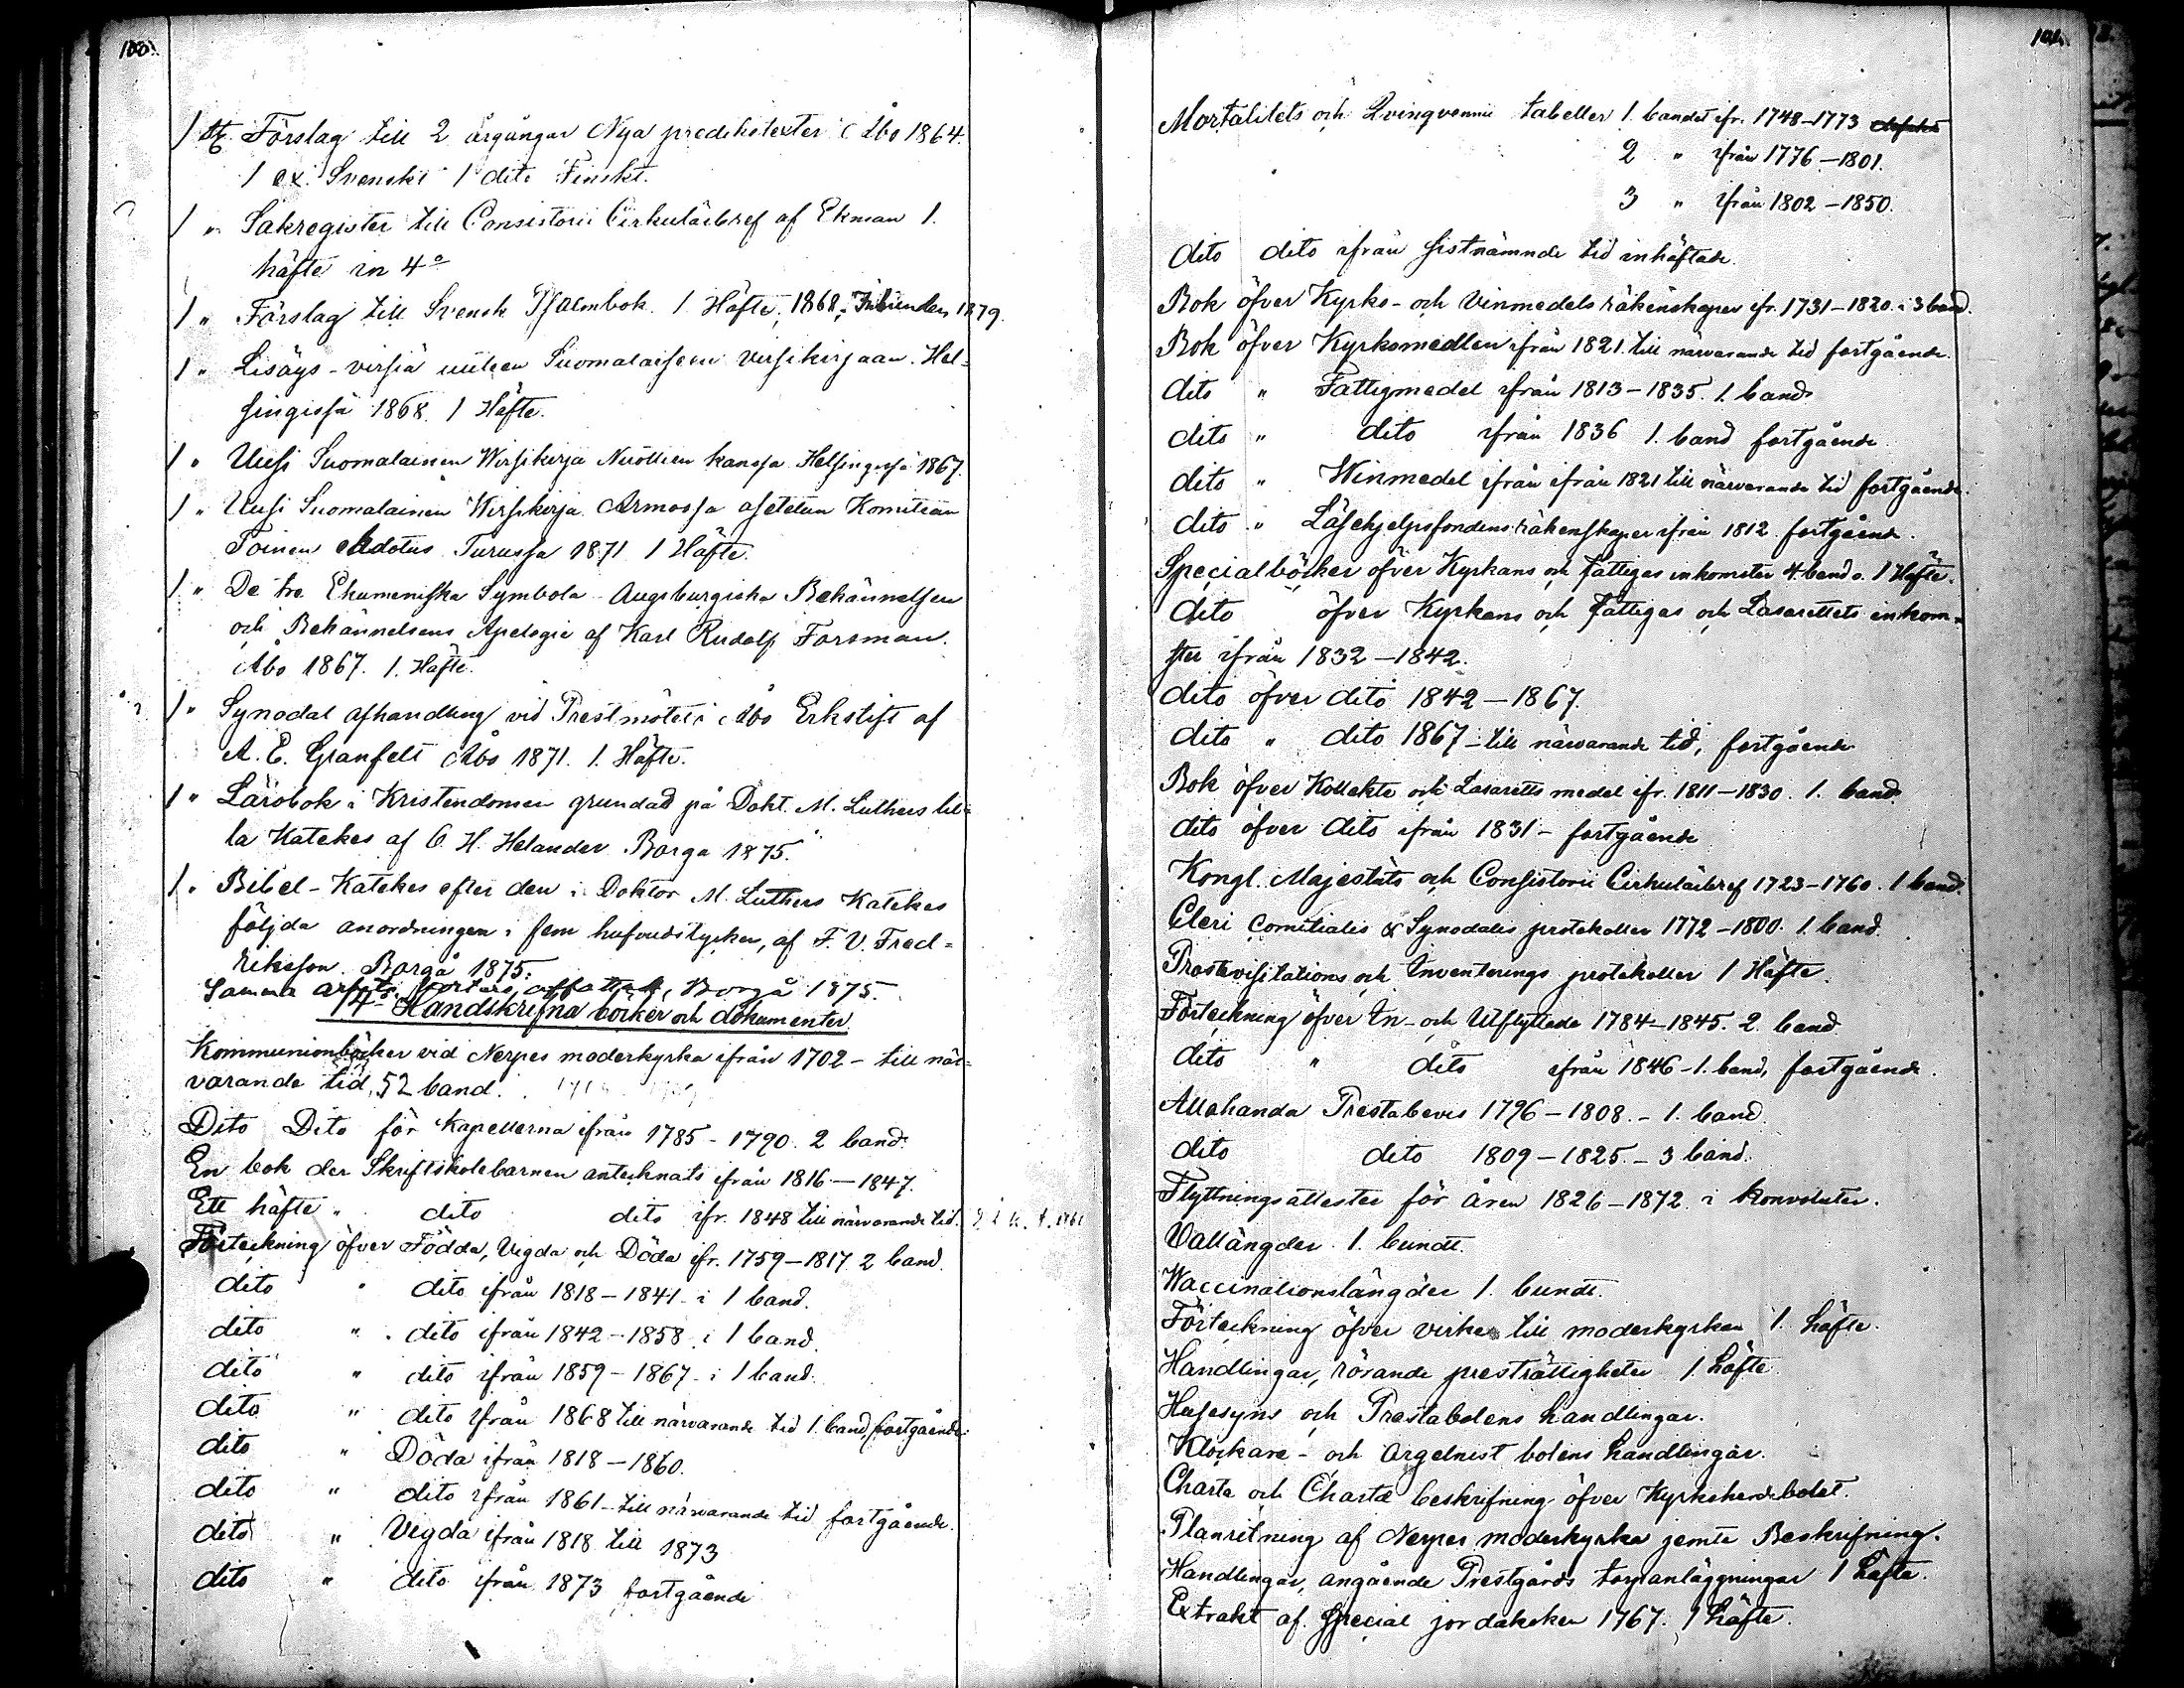 100.
1 st. Förslag till 2 årgångar Nya predikotexter Åbo 1864.
1 ex. Svenskt 1 dito Finskt.
1 " Sakregister till Consistorii Cirkulärbref af Ekman 1.
häfte in 4o
1 " Förslag till Svensk Psalmbok. 1 Häfte, 1868, 1879.
1 " Lisäys-virsiä uuteen Suomalaiseen virsikirjaan. Hel-
singissä 1868. 1 Häfte.
1 " Uusi Suomalainen Wirsikirja Nuottien kanssa Helsingissä 1867.
1 " Uusi Suomalainen Wirsikirja Armossa asetetun Komitean
Toinen ehdotus Turussa 1871 1 Häfte.
1 " De tre Ekumeniska Symbola Augsburgiska Bekännelsen
och Bekännelsens Apologie af Karl Rudolf Forsman.
Åbo 1867. 1. Häfte.
1 " Synodal afhandling vid Prestmötet i Åbo Erkstift af
A. E. Granfelt Åbo 1871. 1. Häfte.
1 " Lärobok i Kristendomen grundad på Dokt. M. Luthers lil-
la Katekes af O. H. Helander Borgå 1875.
1 " Bibel-Katekes efter den i Doktor M. Luthers Katekes
följda anordningen i fem hufvudstycken, af F. V. Fred-
rikson. Borgå 1875.
Samma arbete, kortare affattadt, Borgå 1875.
14 Handskrifna böcker och dokumenter.
Kommunionböcker vid Nerpes moderkyrka ifrån 1702 - till när-
varande tid, 52 band.
Dito Dito för Kapellerna ifrån 1785 - 1790. 2 band.
En bok der Skriftskolebarnen antecknats ifrån 1816 - 1847.
Ett häfte " dito dito ifr. 1848 till närvarande tid.
Förteckning öfver Födda, Vigda och Döda ifr. 1759-1817 2 band.
dito " dito ifrån 1818-1841 i 1 band.
dito " dito ifrån 1842-1858 i 1 band.
dito " dito ifrån 1859-1867 i 1 band.
dito " dito ifrån 1868 till närvarande tid 1. band, fortgående.
dito " Döda ifrån 1818-1860.
dito " dito ifrån 1861-till närvarande tid fortgående.
dito " Vigda ifrån 1818 till 1873
dito " dito ifrån 1873 fortgående
Mortalitets och Qvinqvennii tabeller 1. bandet ifr. 1748-1773
2 " ifrån 1776-1801.
3 " ifrån 1802-1850.
dito dito ifrån sistnämnde tid inhäftade.
Bok öfver Kyrko- och Vinmedels räkenskaper ifr. 1731-1820 i 3 band.
Bok öfver Kyrkomedlen ifrån 1821 till närvarande tid fortgående.
dito " Fattigmedel ifrån 1813-1835. 1. band
dito " dito ifrån 1836 1. band fortgående
dito " Winmedel ifrån ifrån 1821 till närvarande tid fortgående.
dito " Läsehjelpsfondens räkenskaper ifrån 1812 fortgående.
Specialböcker öfver Kyrkans och fattigas inkomster 4. band o. 1 Häfte.
dito öfver Kyrkans och fattigas och Lasarettets inkom-
ster ifrån 1832-1842.
dito öfver dito 1842-1867.
dito " dito 1867-till närvarande tid, fortgående
Bok öfver Kollekte och Lasaretts medel ifr. 1811-1830. 1. band
dito öfver dito ifrån 1831- fortgående
Kongl. Majestäts och Consistorii Cirkulärbref 1723-1760. 1 band.
Cleri Comitialis & Synodalis protokoller 1772-1800. 1. band.
Prostevisitations och Inventerings protokoller 1 Häfte.
Förteckning öfver In- och Utflyttade 1784-1845. 2. band
dito " dito ifrån 1846-1. band, fortgående.
Allahanda Prestabevis 1796-1808. - 1. band.
dito dito 1809-1825. - 3 band.
Flyttningsattester för åren 1826-1872 i Konvoluter.
Vallängder 1. bundt.
Waccinationslängder 1. bundt.
Förteckning öfver virke till moderkyrkan 1. häfte.
Handlingar, rörande presträttigheter 1. häfte.
Husesyns och Prestabolens handlingar.
Klockare- och Orgelnist bolens handlingar.
Charta och Chartæ beskrifning öfver Kyrkoherdebolet.
Planritning af Nerpes moderkyrka jemte Beskrifning.
Handlingar, angående Prestgårds torpanläggningar 1 häfte.
Extrakt af special jordaboken 1767. 1 häfte.